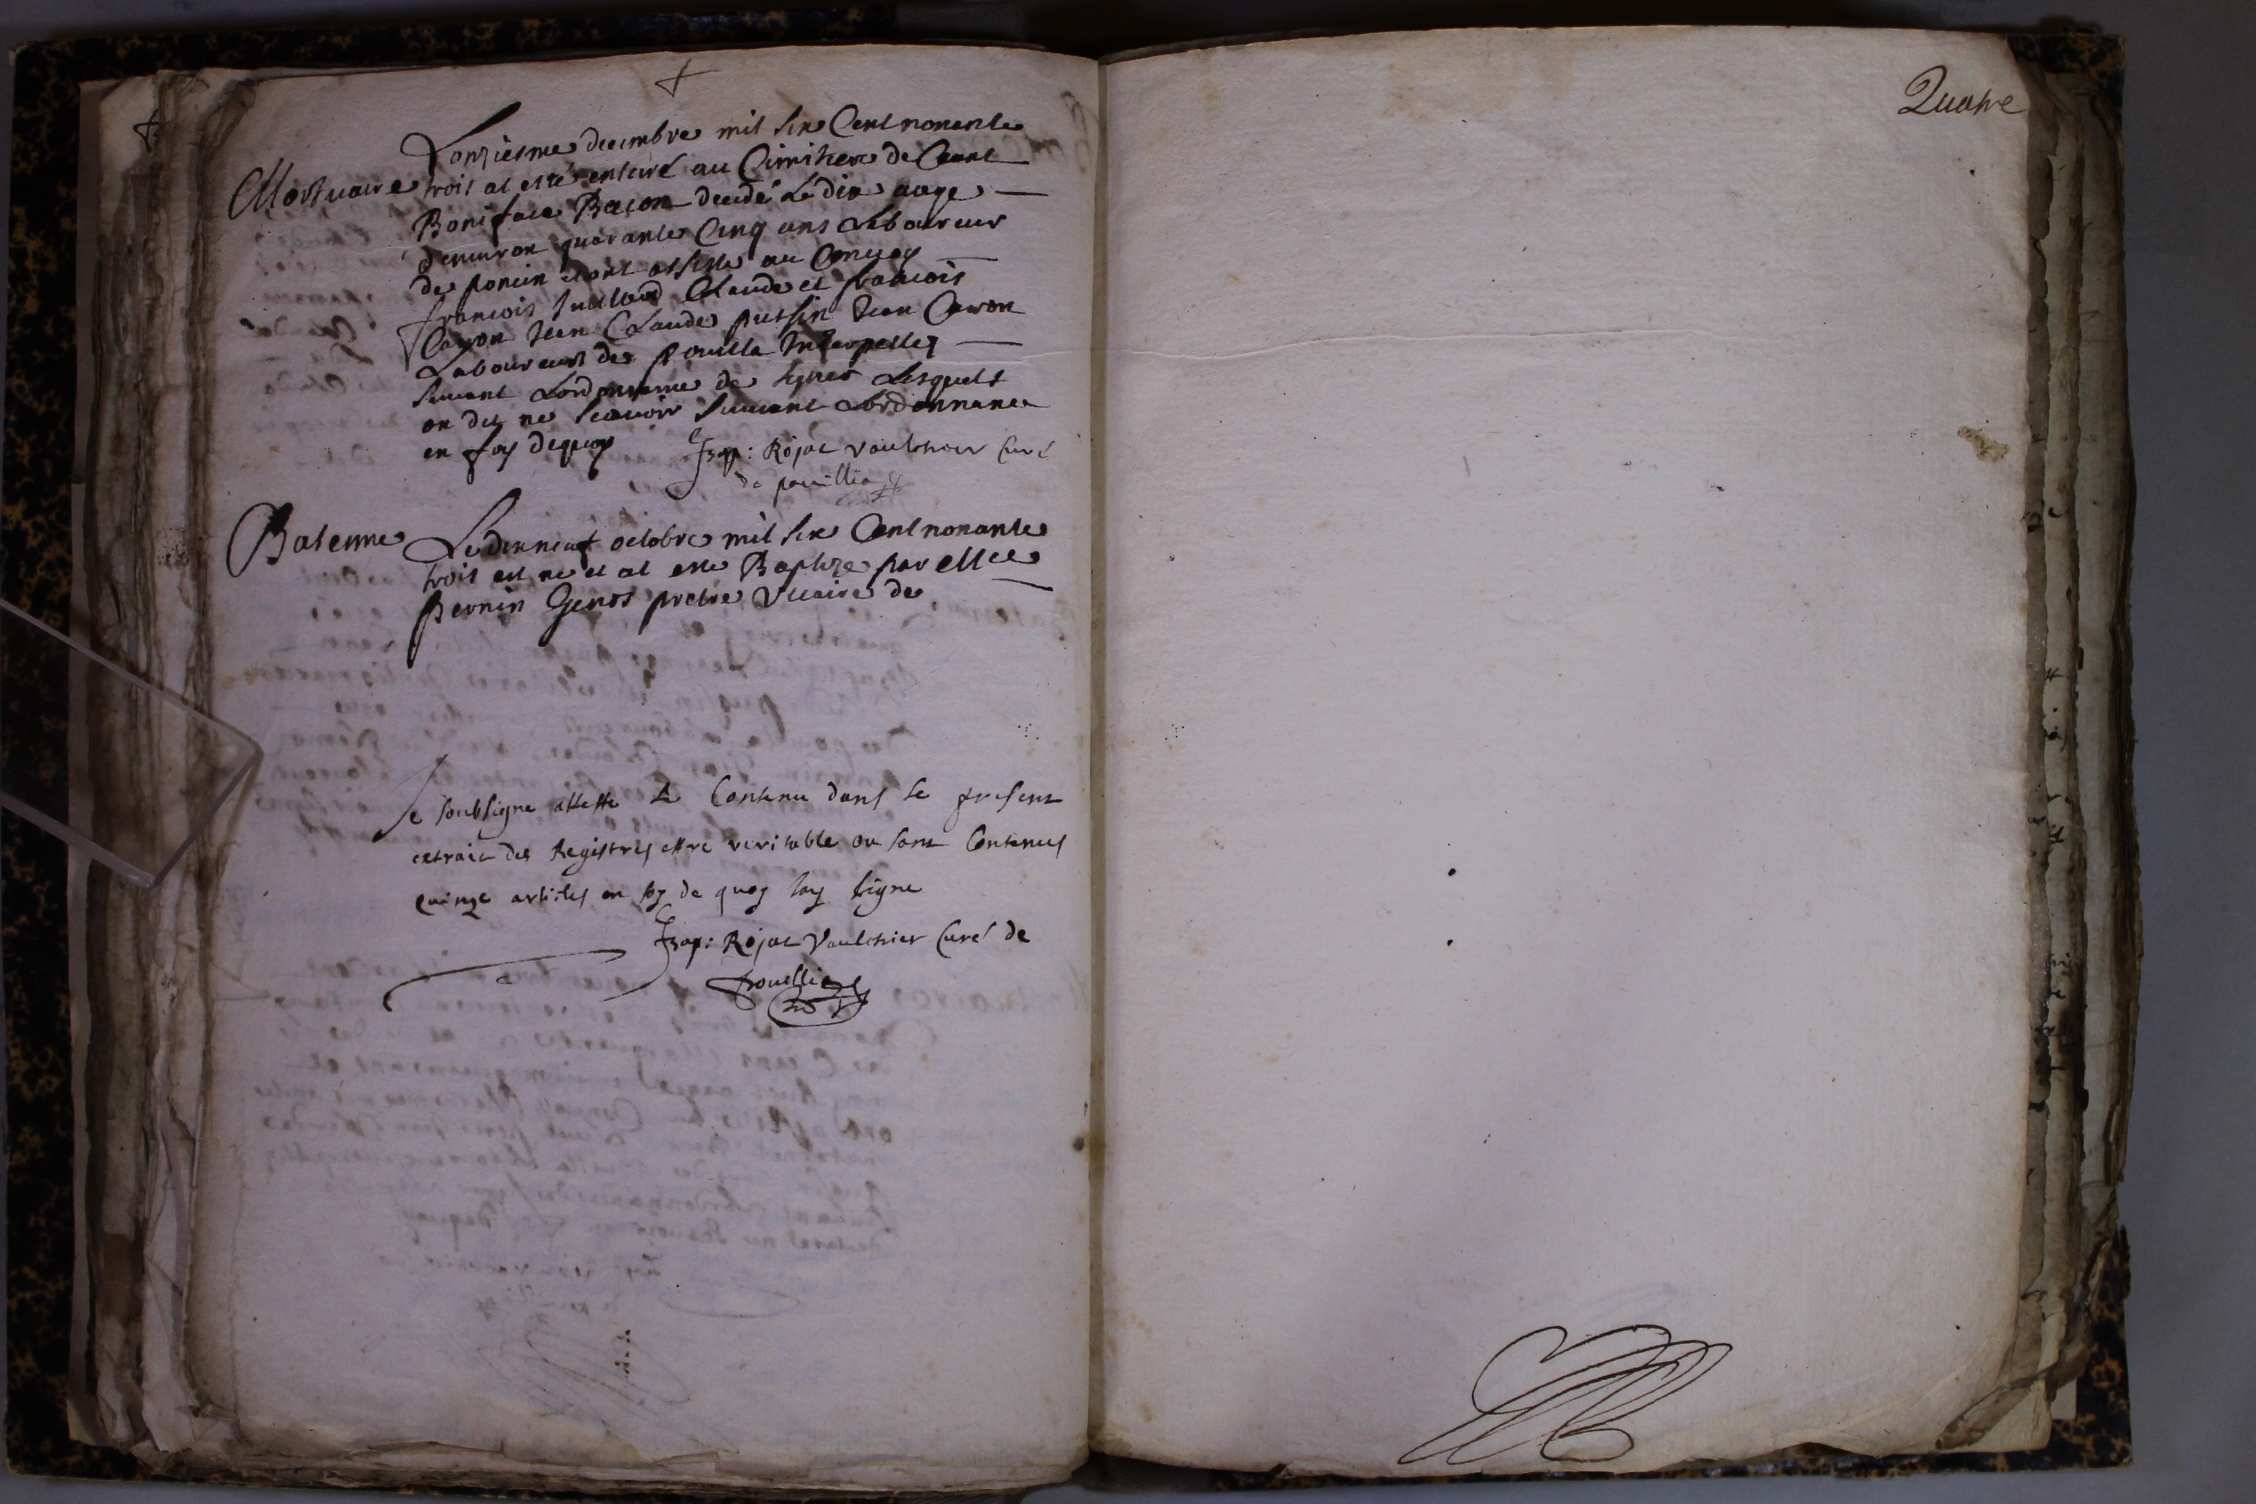 Mortuaire
Lonziesme decembre mil six Cent nonente
trois at esté enteré au Cimitiere de Ceant
Boniface Bacon decedé Le dix aage
denuiron quarante Cinq ans Laboureur
de poncin et ont assiste au Conuoy
francois Claude et francois
Caron Jean Claude putsin Jean Caron
Laboureurs de pouilla Interpelles
suiuant Lordonnance de signer Lesquels
on dit ne scauoir suiuant Lordonnance
en foy dequoy
Rojat Vaulchier Curé
de pouillia
Bateme
Le dixneuf octobre mil six Cent nonante
trois est ne et at este Baptize par Mre
pernin Genos pretre Vicaire de
Je soubsigne atteste le Contenu dans le present
extrait des Registres estre veritable ou sont Contenus
quinze articles en foy de quoy Jay signe
Rojat Vaulchier Curé de
pouillia
Quatre